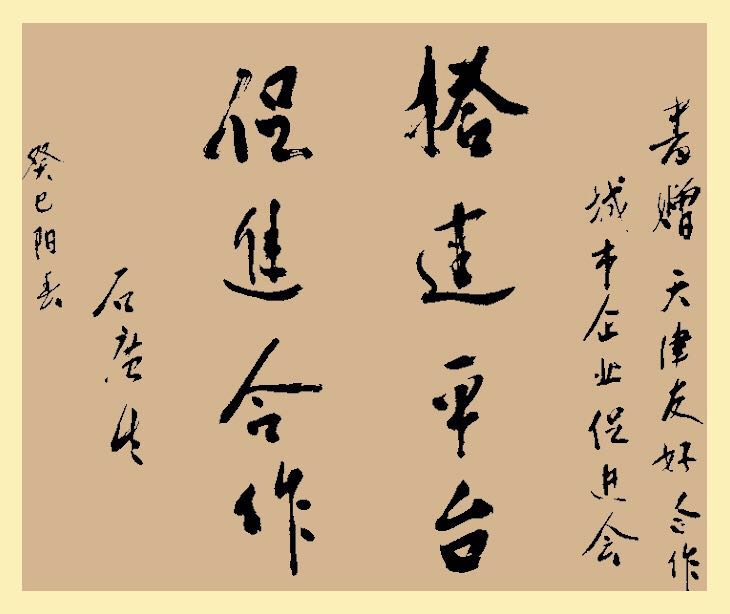 书赠天津友好合作
城市企业促进会
搭建平台
促進合作
石廣生
癸巳阳春